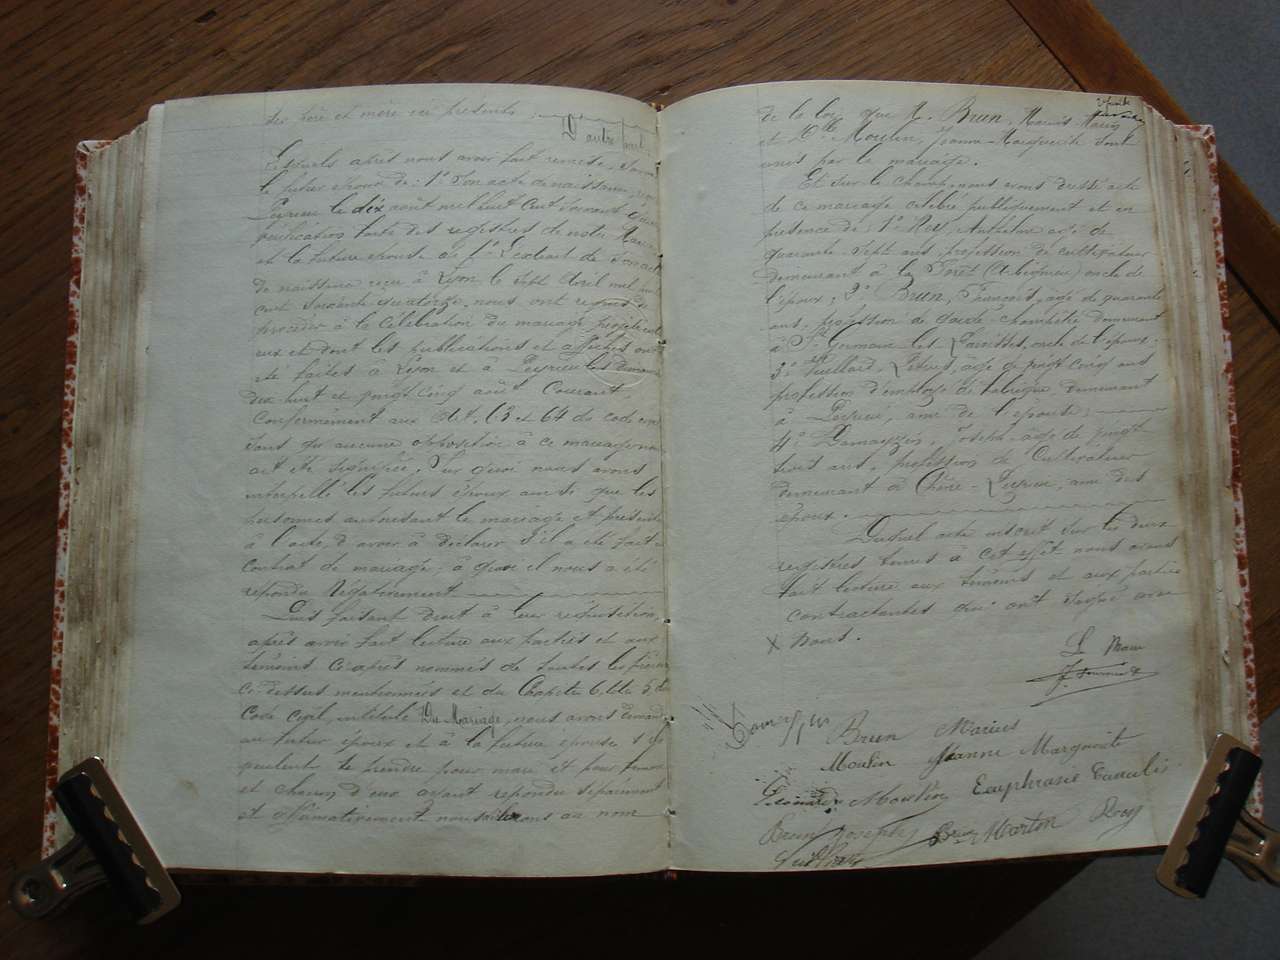 des père et mère ici présents.
D'autre part.
Lesquels après nous avoir fait remise, Savoir
le futur époux de: 1° Son acte de naissance, reçu
Peyrieu le dix août mil huit cent soixante
vérification faite des registres de notre Mairie
et la future épouse de 1° L'extrait de Son acte
de naissance reçu à Lyon, le Sept Avril mil huit
cent soixante quatorze, nous ont requis de
procéder à la Célébration du mariage projeté entre
eux et dont les publications et affiches ont
été faites à Lyon et à Peyrieu les dimanches
dix-huit et vingt Cinq août Courant,
Conformément aux Art. 63 et 64 du code civil
sans qu'aucune opposition à ce mariage nous
ait été signifiée. Sur quoi nous avons
interpellé les futurs époux ainsi que les
personnes autorisant le mariage et présentes
à l'acte, d'avoir à déclarer s'il a été fait
contrat de mariage; à quoi il nous a été
répondu Négativement
Puis faisant droit à leur réquisition,
après avoir fait lecture aux parties et aux
témoins ci-après nommés de toutes les pièces
ci-dessus mentionnées et du Chapitre 6, titre 5 du
Code Civil, intitulé Du Mariage, nous avons demandé
au futur époux et à la future épouse s'ils
veulent se prendre pour mari et pour femme
et chacun d'eux ayant répondu séparément
et affirmativement nous déclarons au nom
de la loi que M. Brun, Marius
et Mlle Moulin, Jeanne-Marguerite sont
unis par le mariage.
Et sur le champ nous avons dressé acte
de ce mariage célébré publiquement et en
présence de: 1° Rey, Anthelme âgé de
quarante sept ans, profession de cultivateur
demeurant à la Foret (Arbignieu) oncle de
l'époux; 2° Brun, François, âgé de quarante
ans, profession de garde-champêtre demeurant
à St Germain-les-Paroisses, oncle de l'époux;
3° Vuillard, âgé de vingt cinq ans
profession d'employé de fabrique, demeurant
à Peyrieu, ami de l'épouse;
4° Damayzin, Joseph, âgé de vingt
huit ans, profession de Cultivateur
demeurant à Chêne-Peyrieu, ami des
époux.
Duquel acte inscrit sur les deux
registres tenus à cet effet nous avons
fait lecture aux témoins et aux parties
contractantes qui ont signé avec
X nous.
Le Maire
Brun Marius
Moulin Jeanne Marguerite
Moulin Euphrasie
Brun Joseph Brun Marton Rey